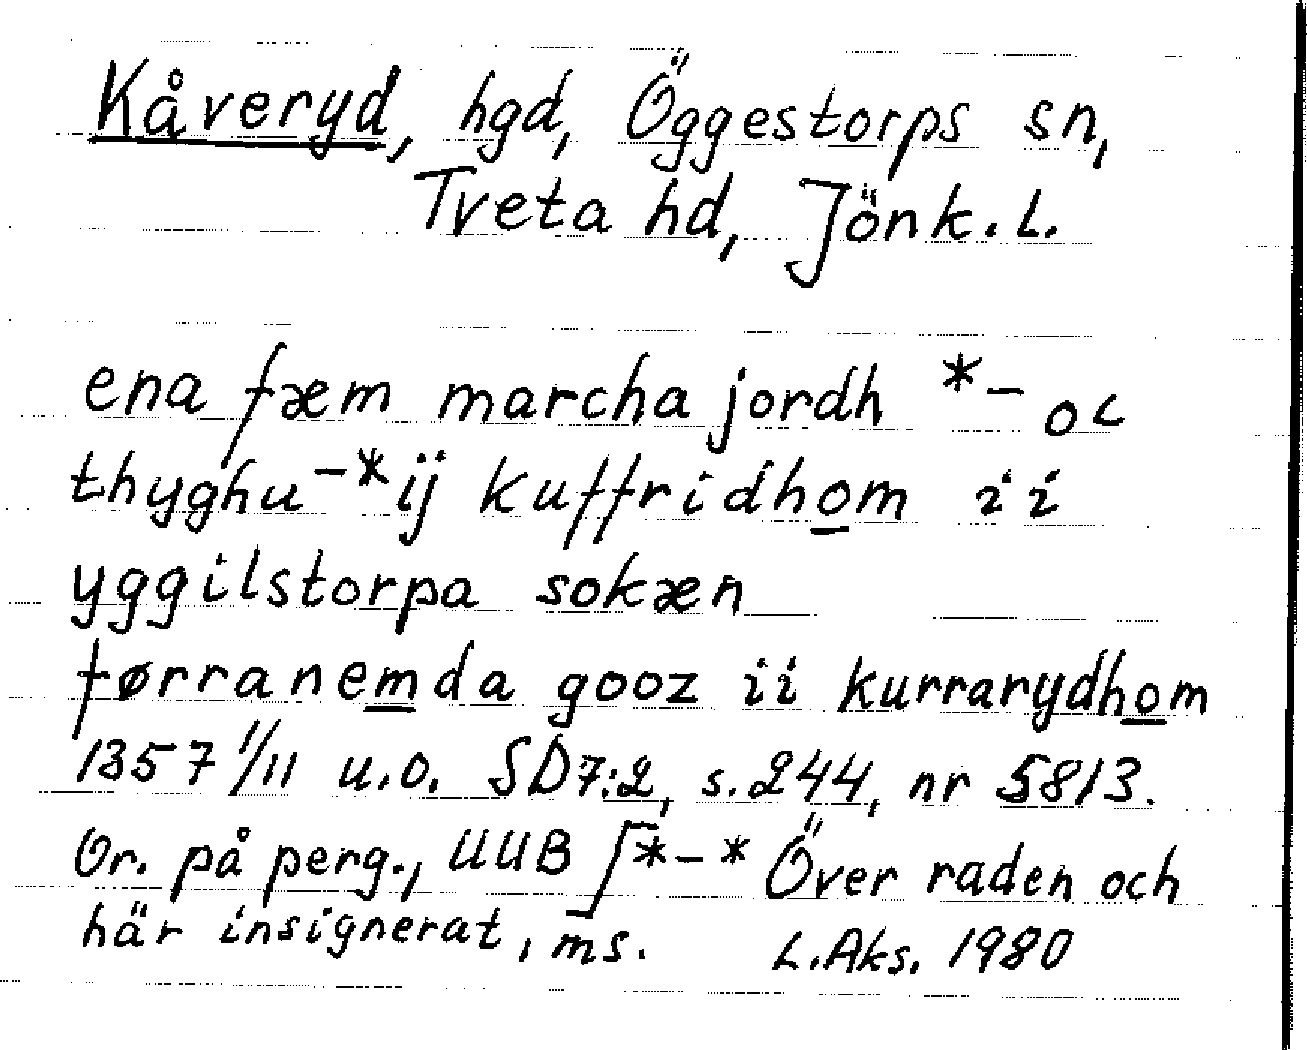 Kåveryd, hgd, Öggestorps sn,
Tveta hd, Jönk. L.
ena fæm marcha jordh *- oc
thyghu -* ij kuffridhom ii
yggilstorpa sokæn
førranemda gooz ii kurrarydhom
1357 1/11 u.o. SD7:2, s. 244, nr 5813.
Or. på perg., UUB ∫ *-* Över raden och
här insignerat, ms. L. Aks. 1980